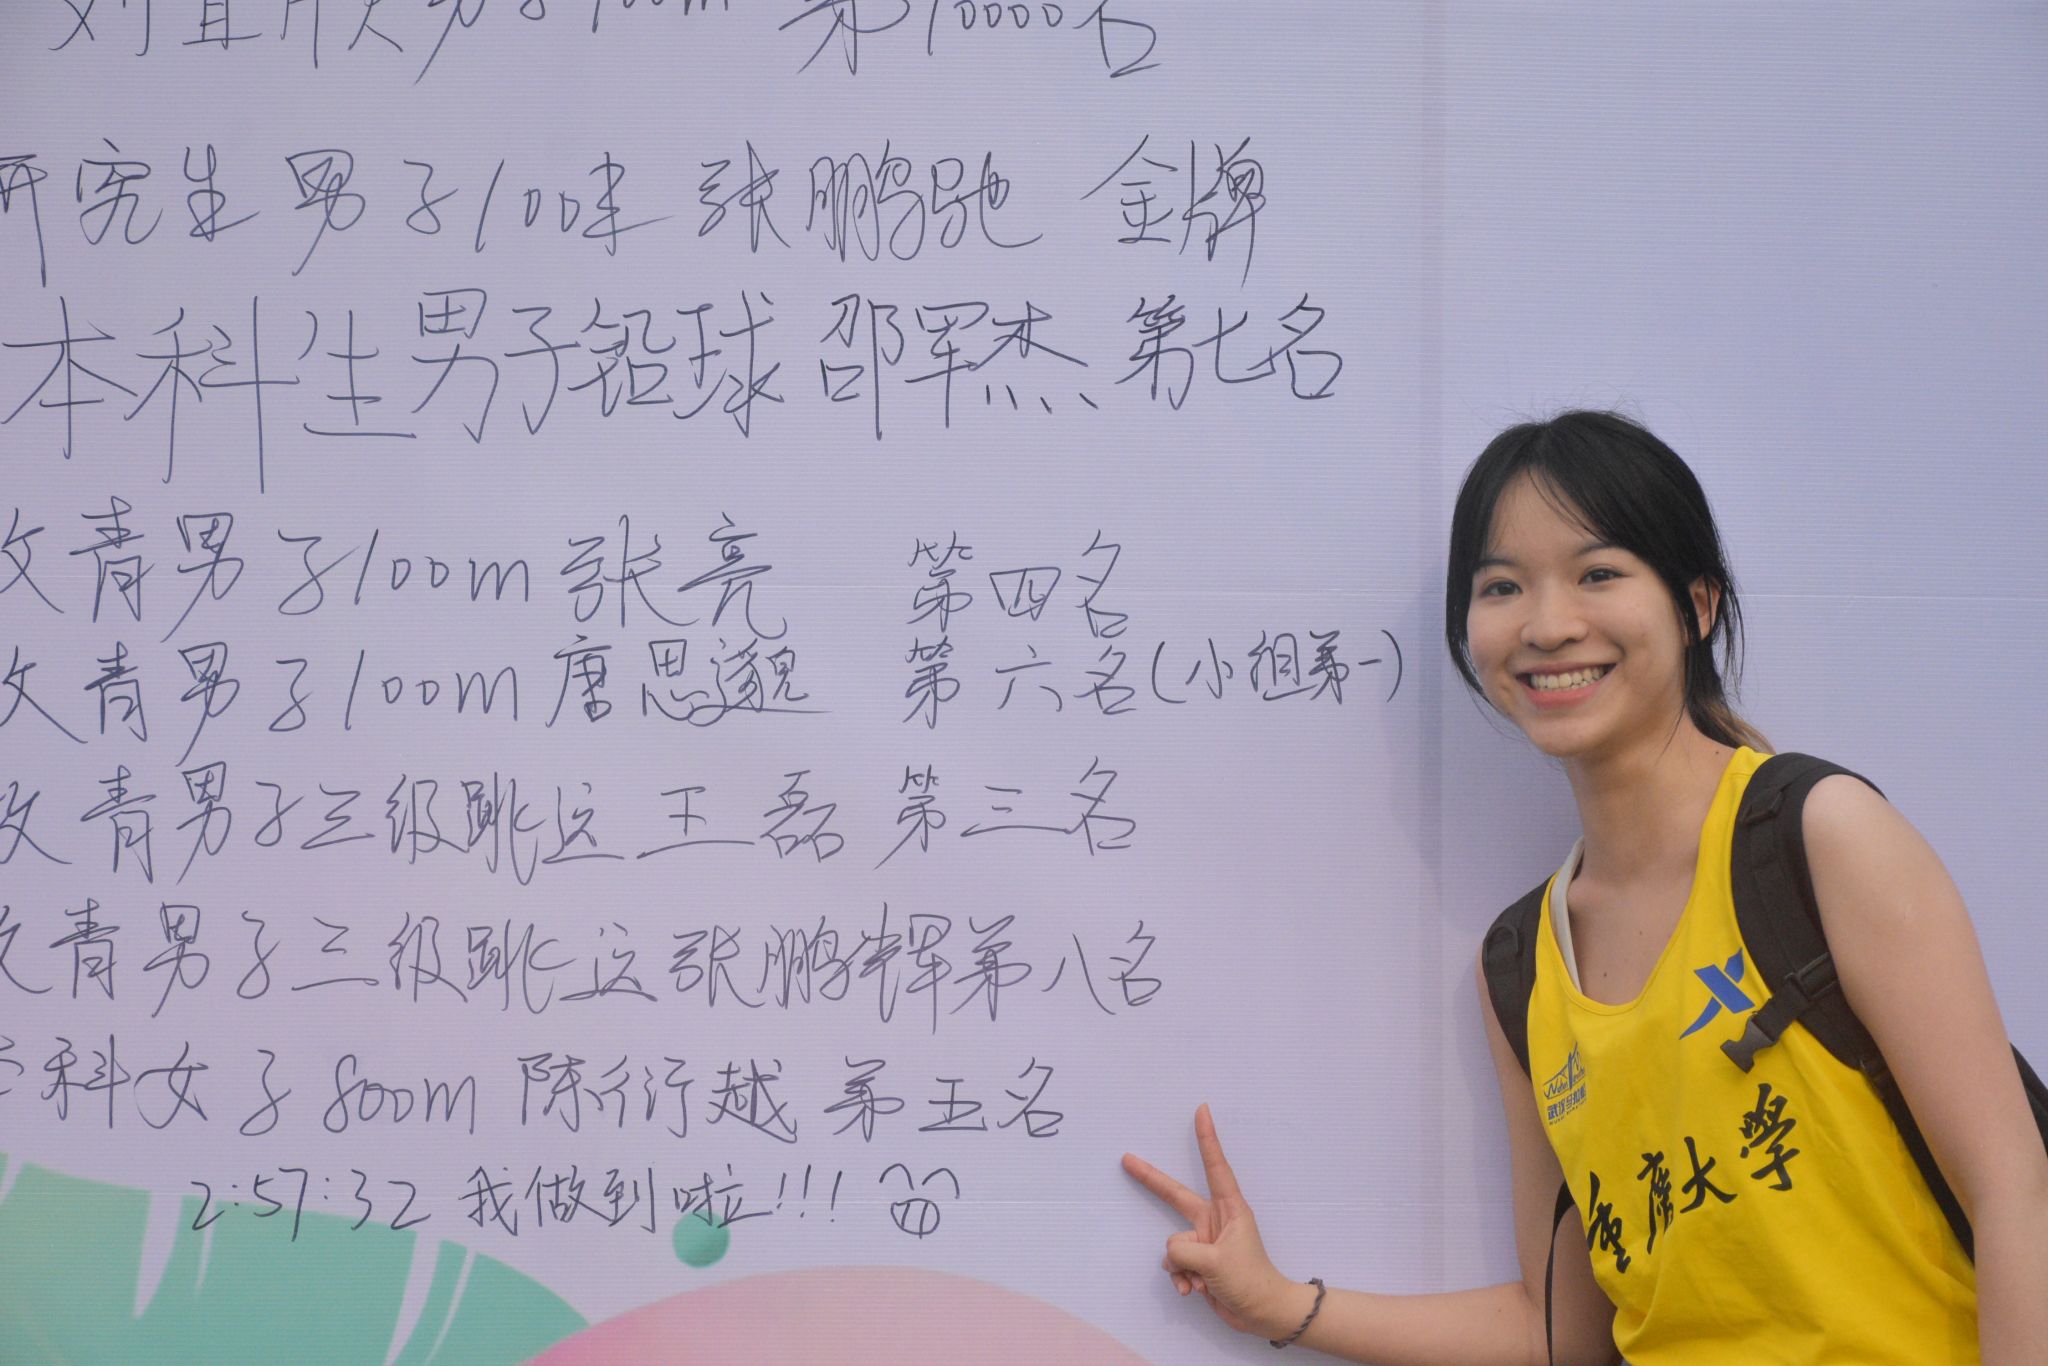 男子100m 第10000名
研究生 男子100米 张鹏驰 金牌
本科生男子铅球 邵军杰 第七名
教青男子100m 张亮 第四名
教青男子100m 唐思邈 第六名(小组第一)
教青男子三级跳远 王磊 第三名
教青男子三级跳远 张鹏辉 第八名
本科女子 800m 陈衍越 第五名
2:57:32 我做到啦!!!
重庆大学